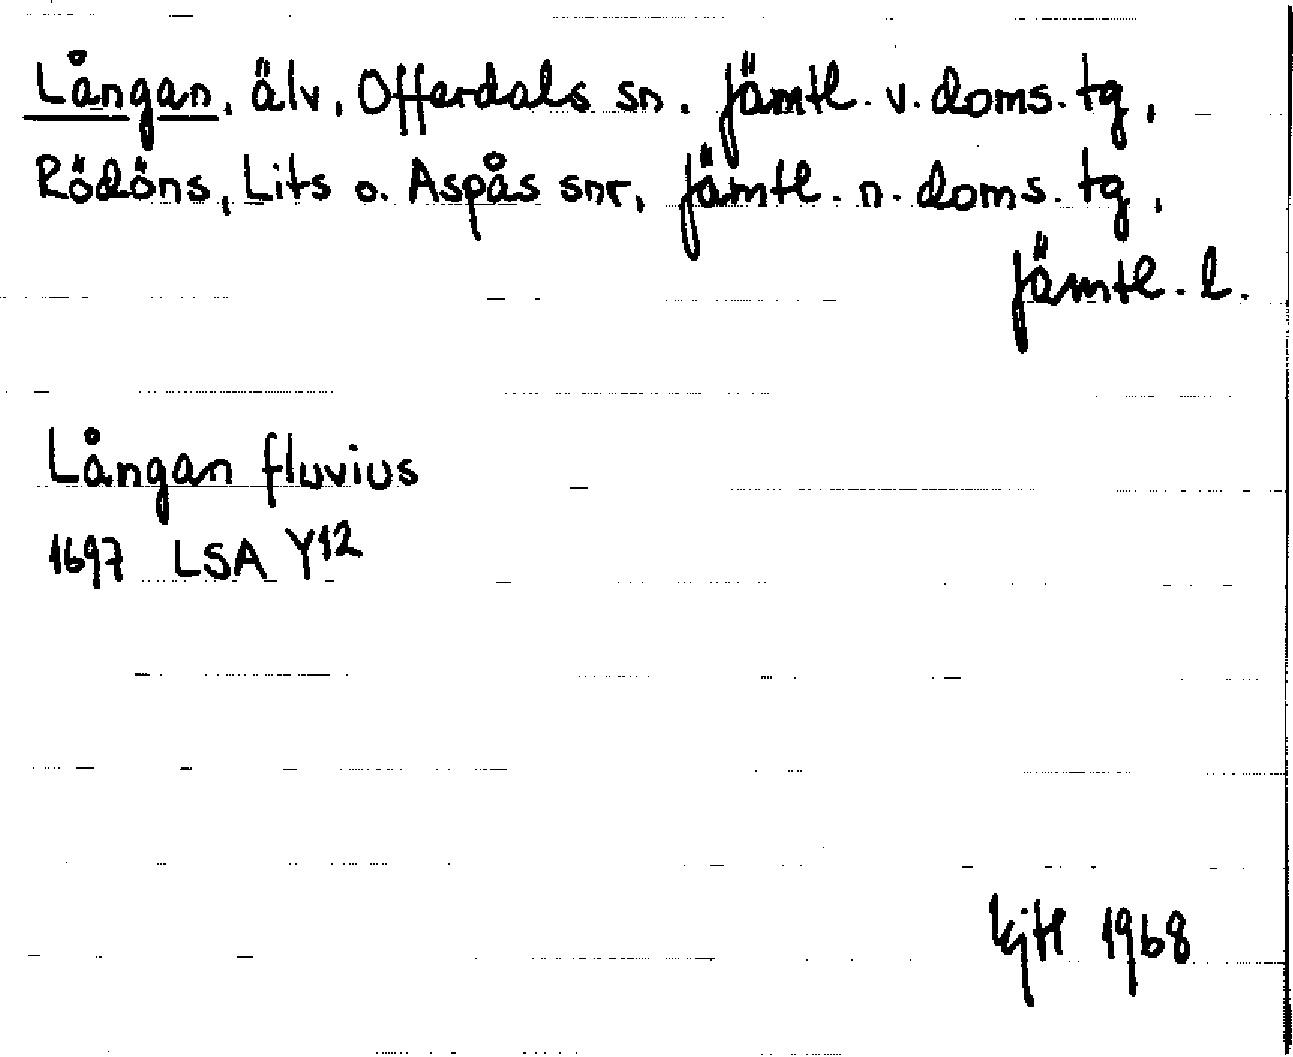 Långan, älv, Offerdals sn. Jämtl. v. doms. tg,
Rödöns, Lits o. Aspås snr, Jämtl. n. doms. tg,
Jämtl. l.
Långan fluvius
1697 LSA Y12
1968